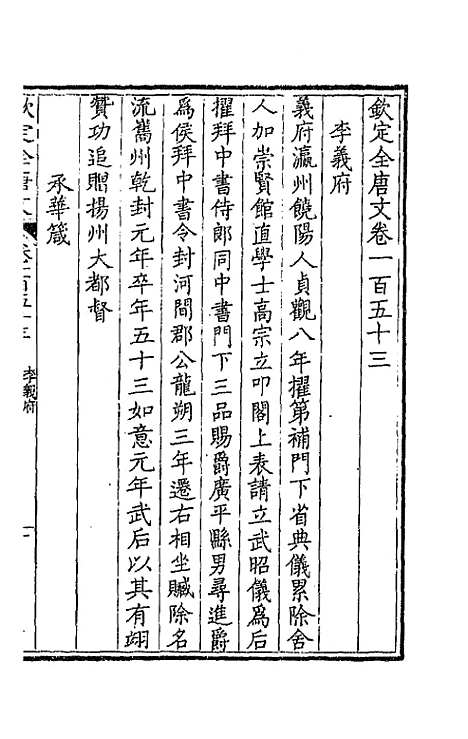 欽定全唐文卷一百五十三
李義府
義府瀛州饒陽人貞觀八年擢第補門下省典儀累除舍
人加崇賢館直學士高宗立叩閣上表請立武昭儀爲后
擢拜中書侍郎同中書門下三品賜爵廣平縣男尋進爵
爲侯拜中書令封河間郡公龍朔三年遷右相坐贓除名
流巂州乾封元年卒年五十三如意元年武后以其有翊
贊功追贈揚州大都督
承華箴
李義府